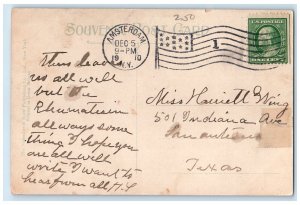 250
SOUVENIR POST CARD
AMSTERDAM
DEC 5
9-PM
1910
N.Y.
1
U.S. POSTAGE
ONE CENT
This leaves
us all well
but the
Rhumatism
always some
thing I hope you
are all well
write I want to
hear from all
Miss Harriett Wing
501 Indiana Ave
San antonio
Texas